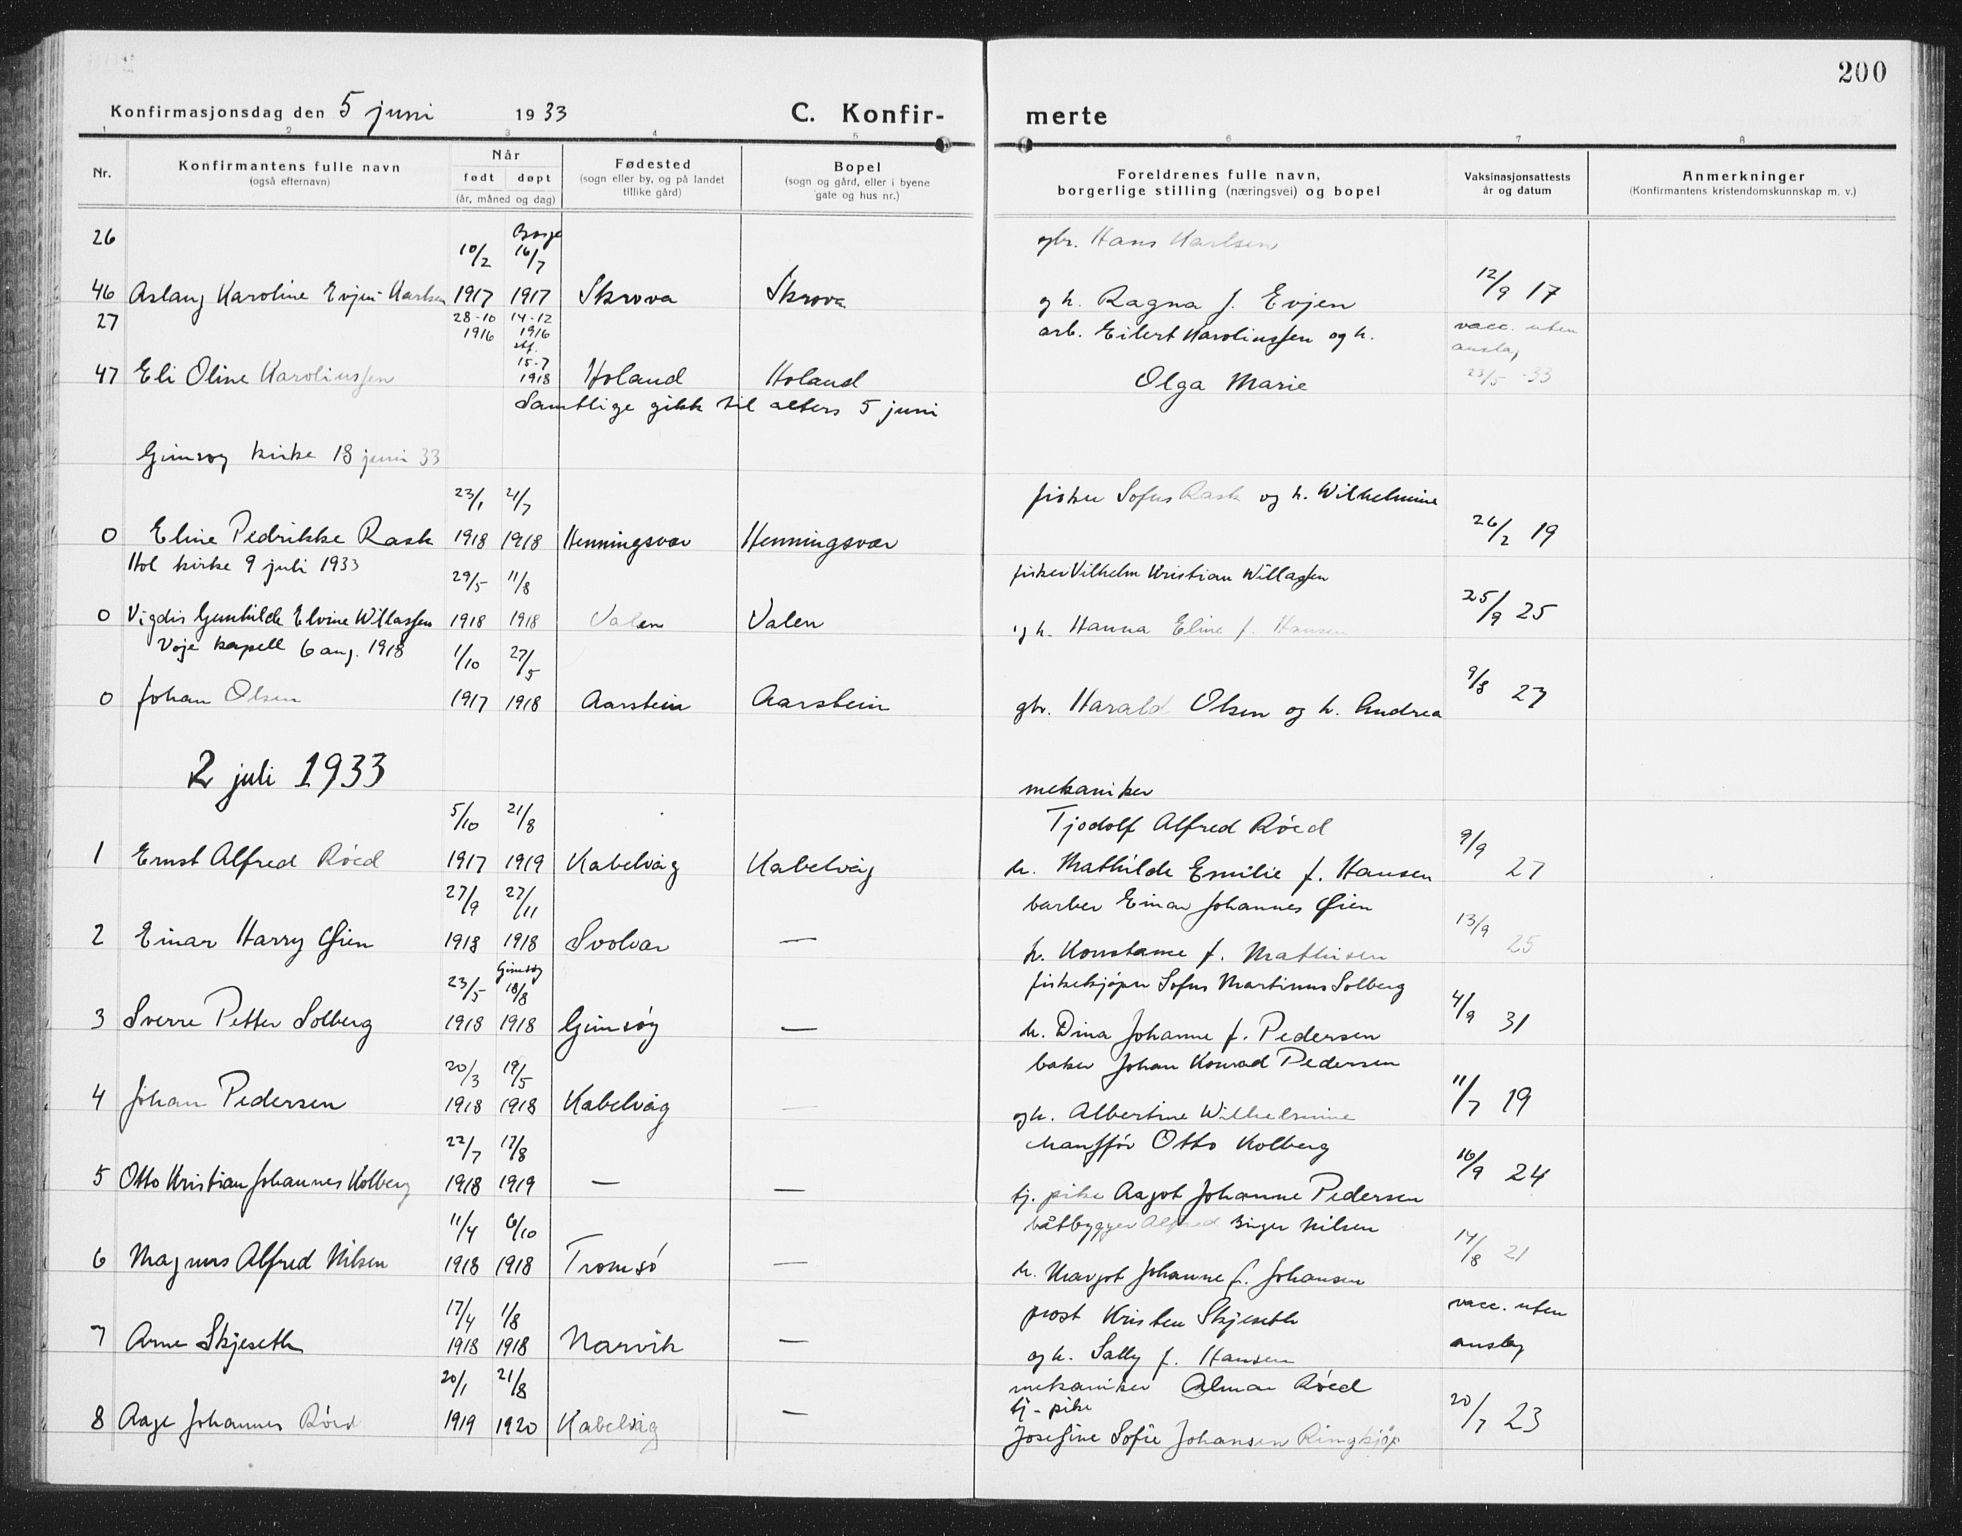 200
Konfirmasjonsdag den 5 juni 1933 C. Konfir- merte
1 2 3 4 5 6 7 8
Nr. Konfirmantens fulle navn (også efternavn) Når født døpt (år, måned og dag) Fødested (sogn eller by, og på landet tillike gård) Bopel (sogn og gård, eller i byene gate og hus nr.) Foreldrenes fulle navn, borgerlige stilling (næringsvei) og bopel Vaksinasjonsattests år og datum Anmerkninger (Konfirmantens kristendomskunnskap m. v.)
26 10/2 16/7 gbr. Hans Karlsen
46 Aslaug Karoline Evjen-Karlsen 1917 1917 Skrova Skrova og h. Ragna f. Evjen 12/9 17
27 28-10 1916 14-12 1916 arb. Eilert Karolinssen og h. vacc. uten anslag
47 Eli Oline Karolinssen 15-7 1918 Holand Holand Olga Marie 23/5 -33
Samtlige gikk til alters 5 juni
Gimsøy kirke 18 juni 33
23/1 21/7 fisker Sofus Rask og h. Wilhelmine
0 Eline Pedrikke Rask 1918 1918 Henningsvær Henningsvær 26/2 19
Hol kirke 9 juli 1933
29/5 11/8 fisker Vilhelm Kristian Willassen
0 Vigdis Gunhilde Elvine Willassen 1918 1918 Valen Valen og h. Hanna Eline f. Hansen 25/9 25
kapell 6 aug. 1918
1/10 27/5
0 Johan Olsen 1917 1918 Aarstein Aarstein gbr. Harald Olsen og h. Andrea 9/8 27
2 juli 1933
mekaniker
5/10 21/8 Tjodolf Alfred Röed
1 Ernst Alfred Röed 1917 1919 Kabelvåg Kabelvåg h. Mathilde Emilie f. Hansen 9/9 27
27/9 27/11 barber Einar Johannes Øien
2 Einar Harry Øien 1918 1918 Svolvær — h. Konstanse f. Mathisen 13/9 25
23/5 Gimsøy 18/8 fiskekjøper Sofus Martinus Solberg
3 Sverre Petter Solberg 1918 1918 Gimsøy — h. Dina Johanne f. Pedersen 4/9 31
20/3 19/5 baker Johan Konrad Pedersen
4 Johan Pedersen 1918 1918 Kabelvåg — og h. Albertine Wilhelmine 11/7 19
22/7 17/8 Otto Kolberg
5 Otto Kristian Johannes Kolberg 1918 1919 — — tj. pike Aagot Johanne Pedersen 16/9 24
11/4 6/10 båtbygger Alfred Birger Nilsen
6 Magnus Alfred Nilsen 1918 1918 Tromsö — h. Margot Johanne f. Johansen 17/8 21
17/4 1/8 prost Kristen Skjeseth vacc. uten
7 Arne Skjeseth 1918 1918 Narvik — og h. Sally f. Hansen anslag
20/1 21/8 mekaniker Almar Röed
tj. pike
8 Aage Johannes Röed 1919 1920 Kabelvåg — Josefine Sofie Johansen Ringkjøp 20/7 23